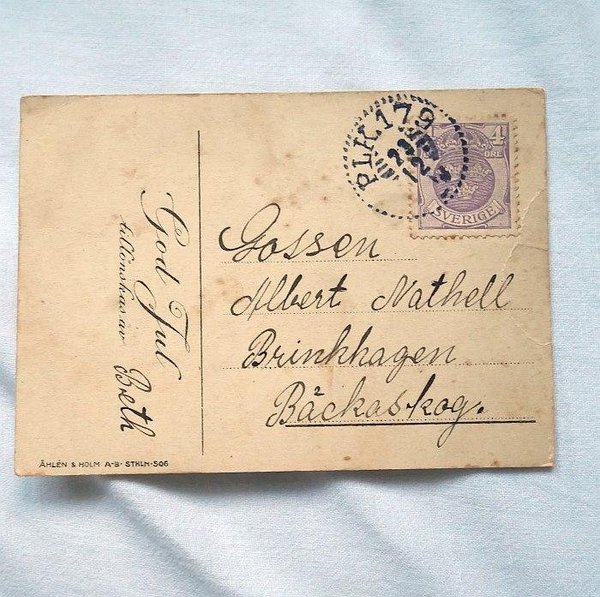 PLK.179
23
12
4
ÖRE
SVERIGE
God Jul
tillönskas av
Breth
Gossen
Albert Nathell
Brinkhagen
Bäckaskog.
ÅHLÉN & HOLM A-B· STKLM·506